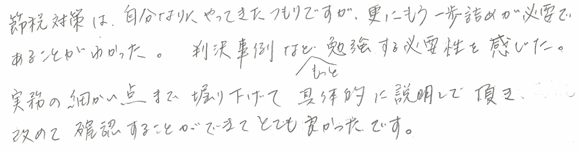 節税対策は、自分なりにやってきたつもりですが、更にもう一歩詰めが必要で
あることがわかった。 判決事例など もっと 勉強する必要性を感じた。
実務の細かい点まで掘り下げて具体的に説明して頂き、
改めて確認することができてとても良かったです。